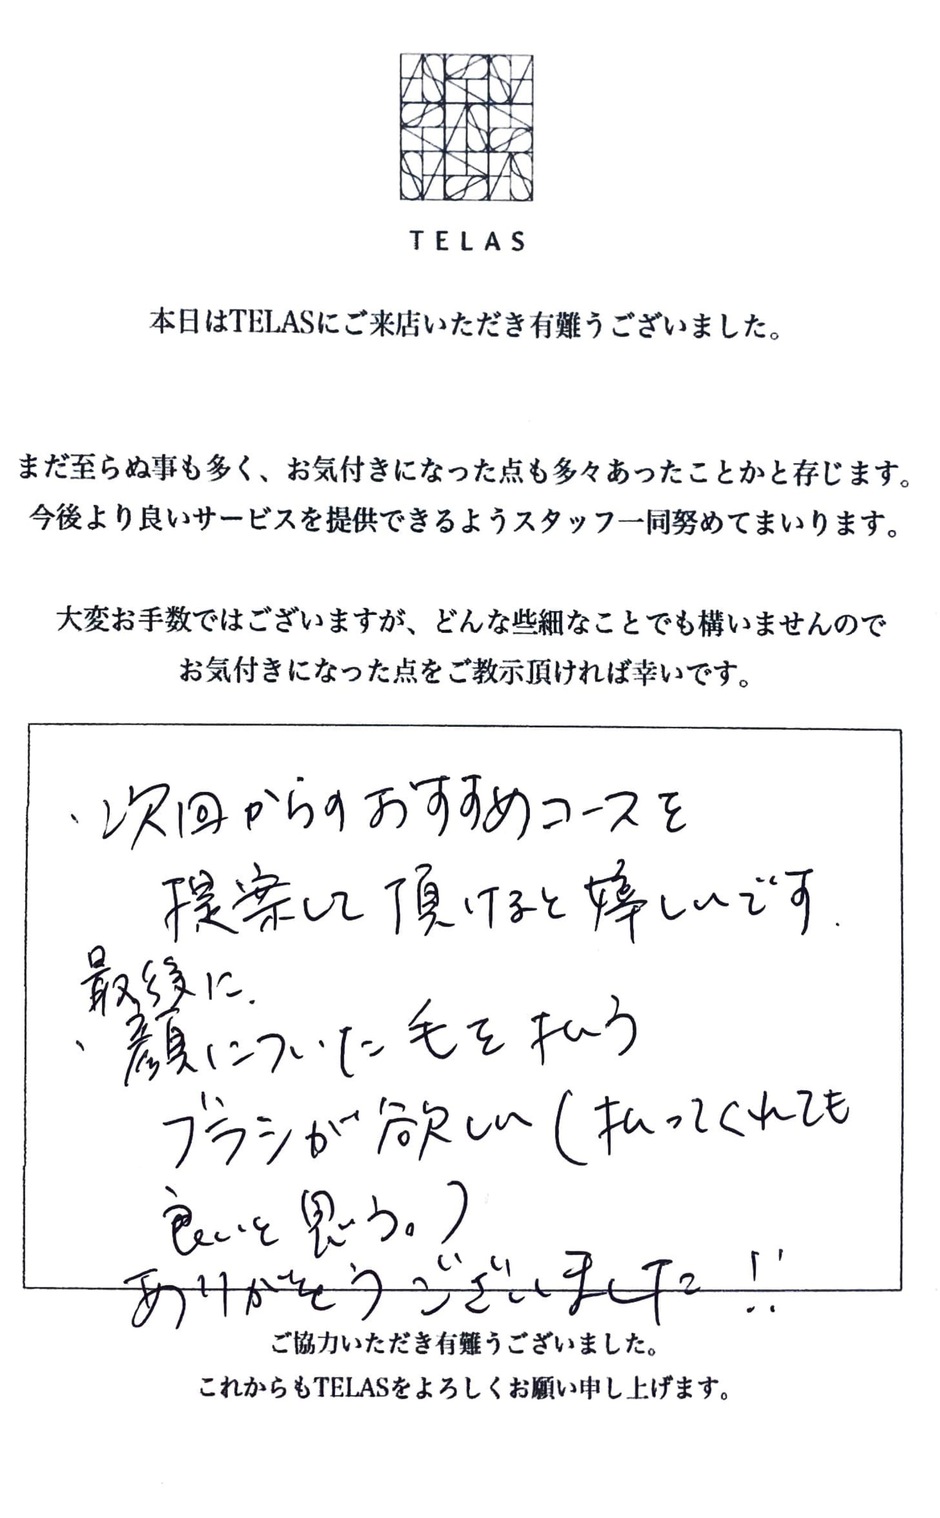 TELAS
本日はTELASにご来店いただき有難うございました。
まだ至らぬ事も多く、お気付きになった点も多々あったことかと存じます。
今後より良いサービスを提供できるようスタッフ一同努めてまいります。
大変お手数ではございますが、どんな些細なことでも構いませんので
お気付きになった点をご教示頂ければ幸いです。
・次回からのおすすめコースを
提案して頂けると嬉しいです.
最後に.
・顔についた毛を払う
ブラシが欲しい(払ってくれても
良いと思う。)
ありがとうございました!!
ご協力いただき有難うございました。
これからもTELASをよろしくお願い申し上げます。